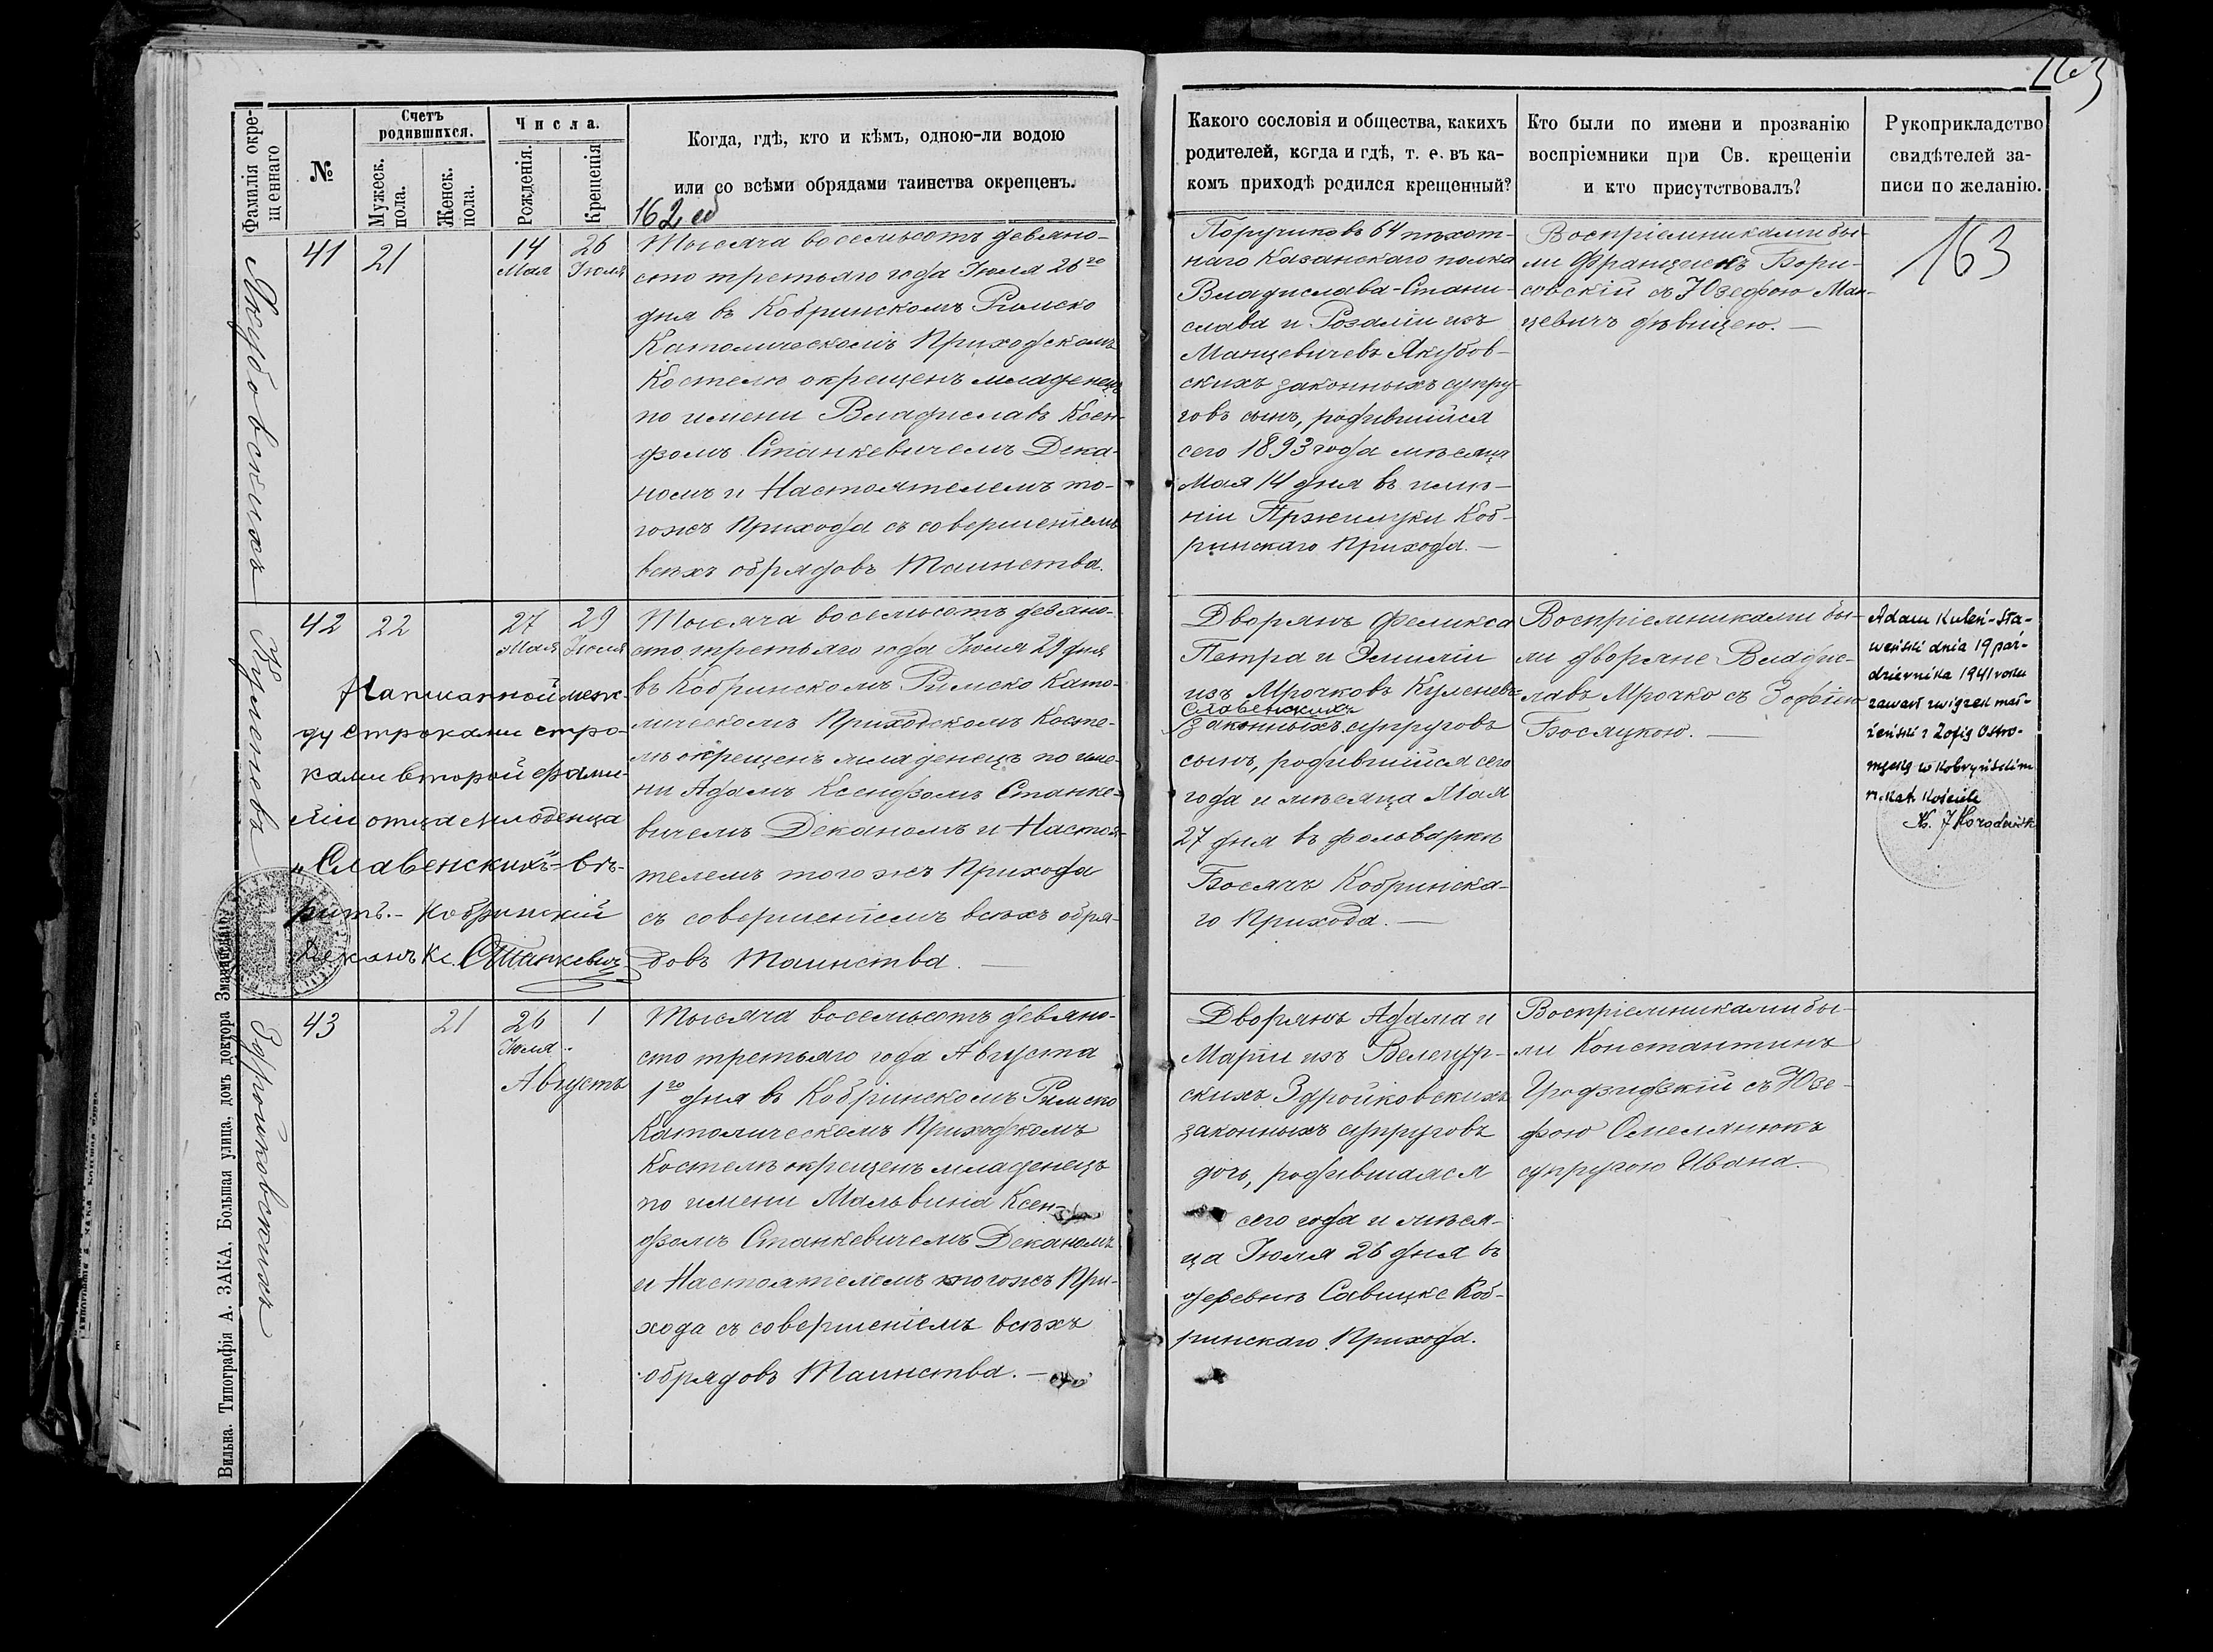 163
Фамилія окре-
щеннаго
№
Счетъ
родившихся.
Мужеск.
пола.
Женск.
пола.
Числа.
Рожденія.
Крещенія
Когда, гдѣ, кто и кѣмъ, одною-ли водою
или со всѣми обрядами таинства окрещенъ.
162 об
Какого сословія и общества, какихъ
родителей, когда и гдѣ, т. е. въ ка-
комъ приходѣ родился крещенный?
Кто были по имени и прозванію
воспріемники при Св. крещеніи
и кто присутствовалъ?
Рукоприкладство
свидѣтелей за-
писи по желанію.
Якубовскихъ
41
21
14
Мая
26
Іюля
Тысяча восемьсотъ девяно-
сто третьяго года Іюля 26го
дня въ Кобринскомъ Римско
Католическомъ Приходскомъ
Костелѣ окрещенъ младенецъ
по имени Владиславъ Ксен-
дзомъ Станкевичемъ Дека-
номъ и Настоятелемъ то-
гожъ Прихода съ совершеніемъ
всѣхъ обрядовъ Таинства.
Поручиковъ 64 пѣхот-
наго Казанскаго полка
Владислава-Стани-
слава и Розаліи изъ
Манцевичевъ Якубов-
скихъ законныхъ супру-
говъ сынъ, родившійся
сего 1893 года мѣсяца
Мая 14 дня въ имѣ-
ніи Пржилуки Коб-
ринскаго Прихода.—
Воспріемниками бы-
ли Францискъ Бори-
совскій съ Юзефою Ман-
цевичъ дѣвицею.—
163
Куленевъ
42
22
27
Мая
29
Іюля
Написанной меж-
ду строками стро-
ками второй фами-
ліи отца младенца
„Славенскихъ"- вѣ-
ритъ.- Кобринскій
Деканъ Кс. Станкевичъ
Тысяча восемьсотъ девяно-
сто третьяго года Іюля 29 дня
въ Кобринскомъ Римско Като-
лическомъ Приходскомъ Косте-
лѣ окрещенъ младенецъ по име-
ни Адамъ Ксендзомъ Станке-
вичемъ Деканомъ и Настоя-
телемъ тогожъ Прихода
съ совершеніемъ всѣхъ обря-
довъ Таинства.—
Дворянъ Феликса
Петра и Эмиліи
изъ Мрочковъ Куленевъ-
Славенскихъ
законныхъ супруговъ
сынъ, родившійся сего
года и мѣсяца Мая
27 дня въ фольваркѣ
Босячъ Кобринска-
го Прихода.—
Воспріемниками бы-
ли дворяне Владис-
лавъ Мрочко съ Зофіею
Босяцкою.—
Adam Kuleń-Sła-
weński dnia 19 paź-
dziernika 1941 roku
zawarł związek mał-
żeński z Zofią Ostro-
męcką w Kobryńskim
r. kat. Kościele
Ks. J.
Здройковскихъ
43
21
26
Іюля
1
Августъ
Тысяча восемьсотъ девяно-
сто третьяго года Августа
1го дня въ Кобринскомъ Римско
Католическомъ Приходскомъ
Костелѣ окрещенъ младенецъ
по имени Мальвина Ксен-
дзомъ Станкевичемъ Деканомъ
и Настоятелемъ тогожъ При-
хода съ совершеніемъ всѣхъ
обрядовъ Таинства.—
Дворянъ Адама и
Маріи изъ
скихъ Здройковскихъ
законныхъ супруговъ
дочь, родившаяся
сего года и мѣся-
ца Іюля 26 дня въ
деревнѣ Савицке Коб-
ринскаго Прихода.
Воспріемниками бы-
ли Константинъ
Гродзидзкій съ Юзе-
фою Омелянюкъ
супругою Ивана.
Вильна. Типографія А. ЗАКА, Большая улица, домъ доктора Знамиславс